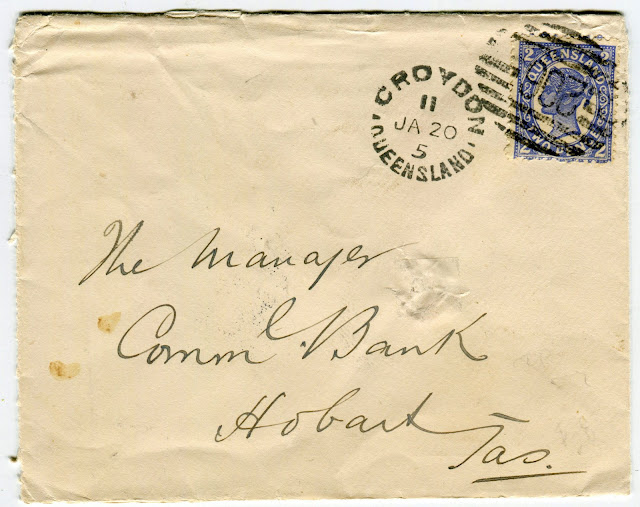 CROYDON
11
JA 20
5
QUEENSLAND
2 QUEENSLAND 2
2 TWO PENCE 2
The Manager
Comml. Bank
Hobart
Tas.